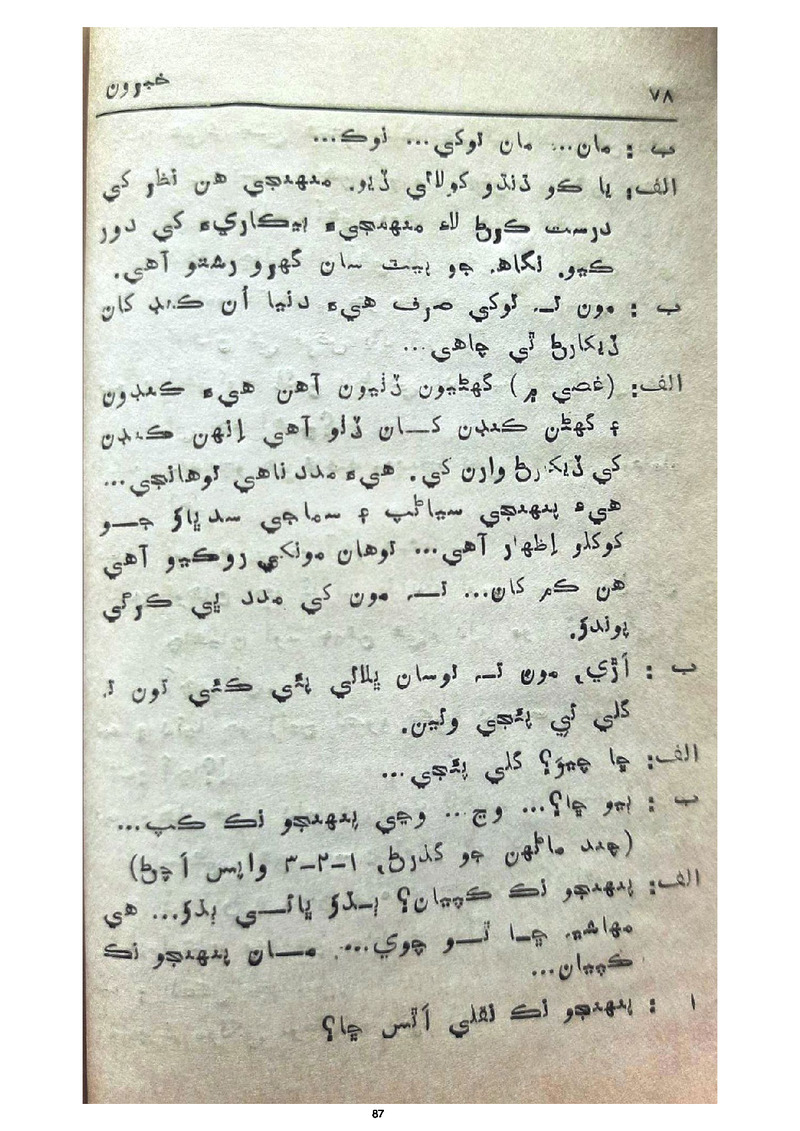 ٧٨ خبرون
ب : مان... مان توکي... توک...
الف: يا ڪو ڌنڌو کولائي ڏيو. منهنجي هن نظر کي
درست ڪرڻ لاءِ منهنجيءَ بيڪاريءَ کي دور
ڪيو. نگاهه جو پيٽ سان گهرو رشتو آهي.
ب : مون تہ توکي صرف هيءَ دنيا اُن ڪنڊ کان
ڏيکارڻ ٿي چاهي...
الف: (غصي ۾) گهڻيون ڏٺيون آهن هيءَ ڪنڊون
۽ گهڻن ڪنڊن کان ڏٺو آهي اِنهن ڪنڊن
کي ڏيکارڻ وارن کي. هيءَ مدد ناهي توهانجي...
هيءَ پنهنجي سياڻپ ۽ سماجي سڌارؤ جو
کوکلو اِظهار آهي... توهان مونکي روڪيو آهي
هن ڪم کان... تہ مون کي مدد پي ڪرڻي
پوندؤ.
ب : اَڙي، مون تہ توسان ڀلائي پئي ڪئي تون تہ
گلي ئي پئجي وئين.
الف: ڇا چيوَ؟ گلي پئجي...
ب : ٻيو ڇا؟... وڃ... وڃي پنهنجو نڪ ڪپ...
(چند ماڻهن جو گذرڻ، ١-٢-٣ واپس اَچڻ)
الف: پنهنجو نڪ ڪپيان؟ ٻڌؤ ڀائي ٻڌؤ... هي
مهاشيہ ڇا ٿو چوي.... مان پنهنجو نڪ
ڪپيان...
١ : پنهنجو نڪ نقلي اَٿس ڇا؟
87